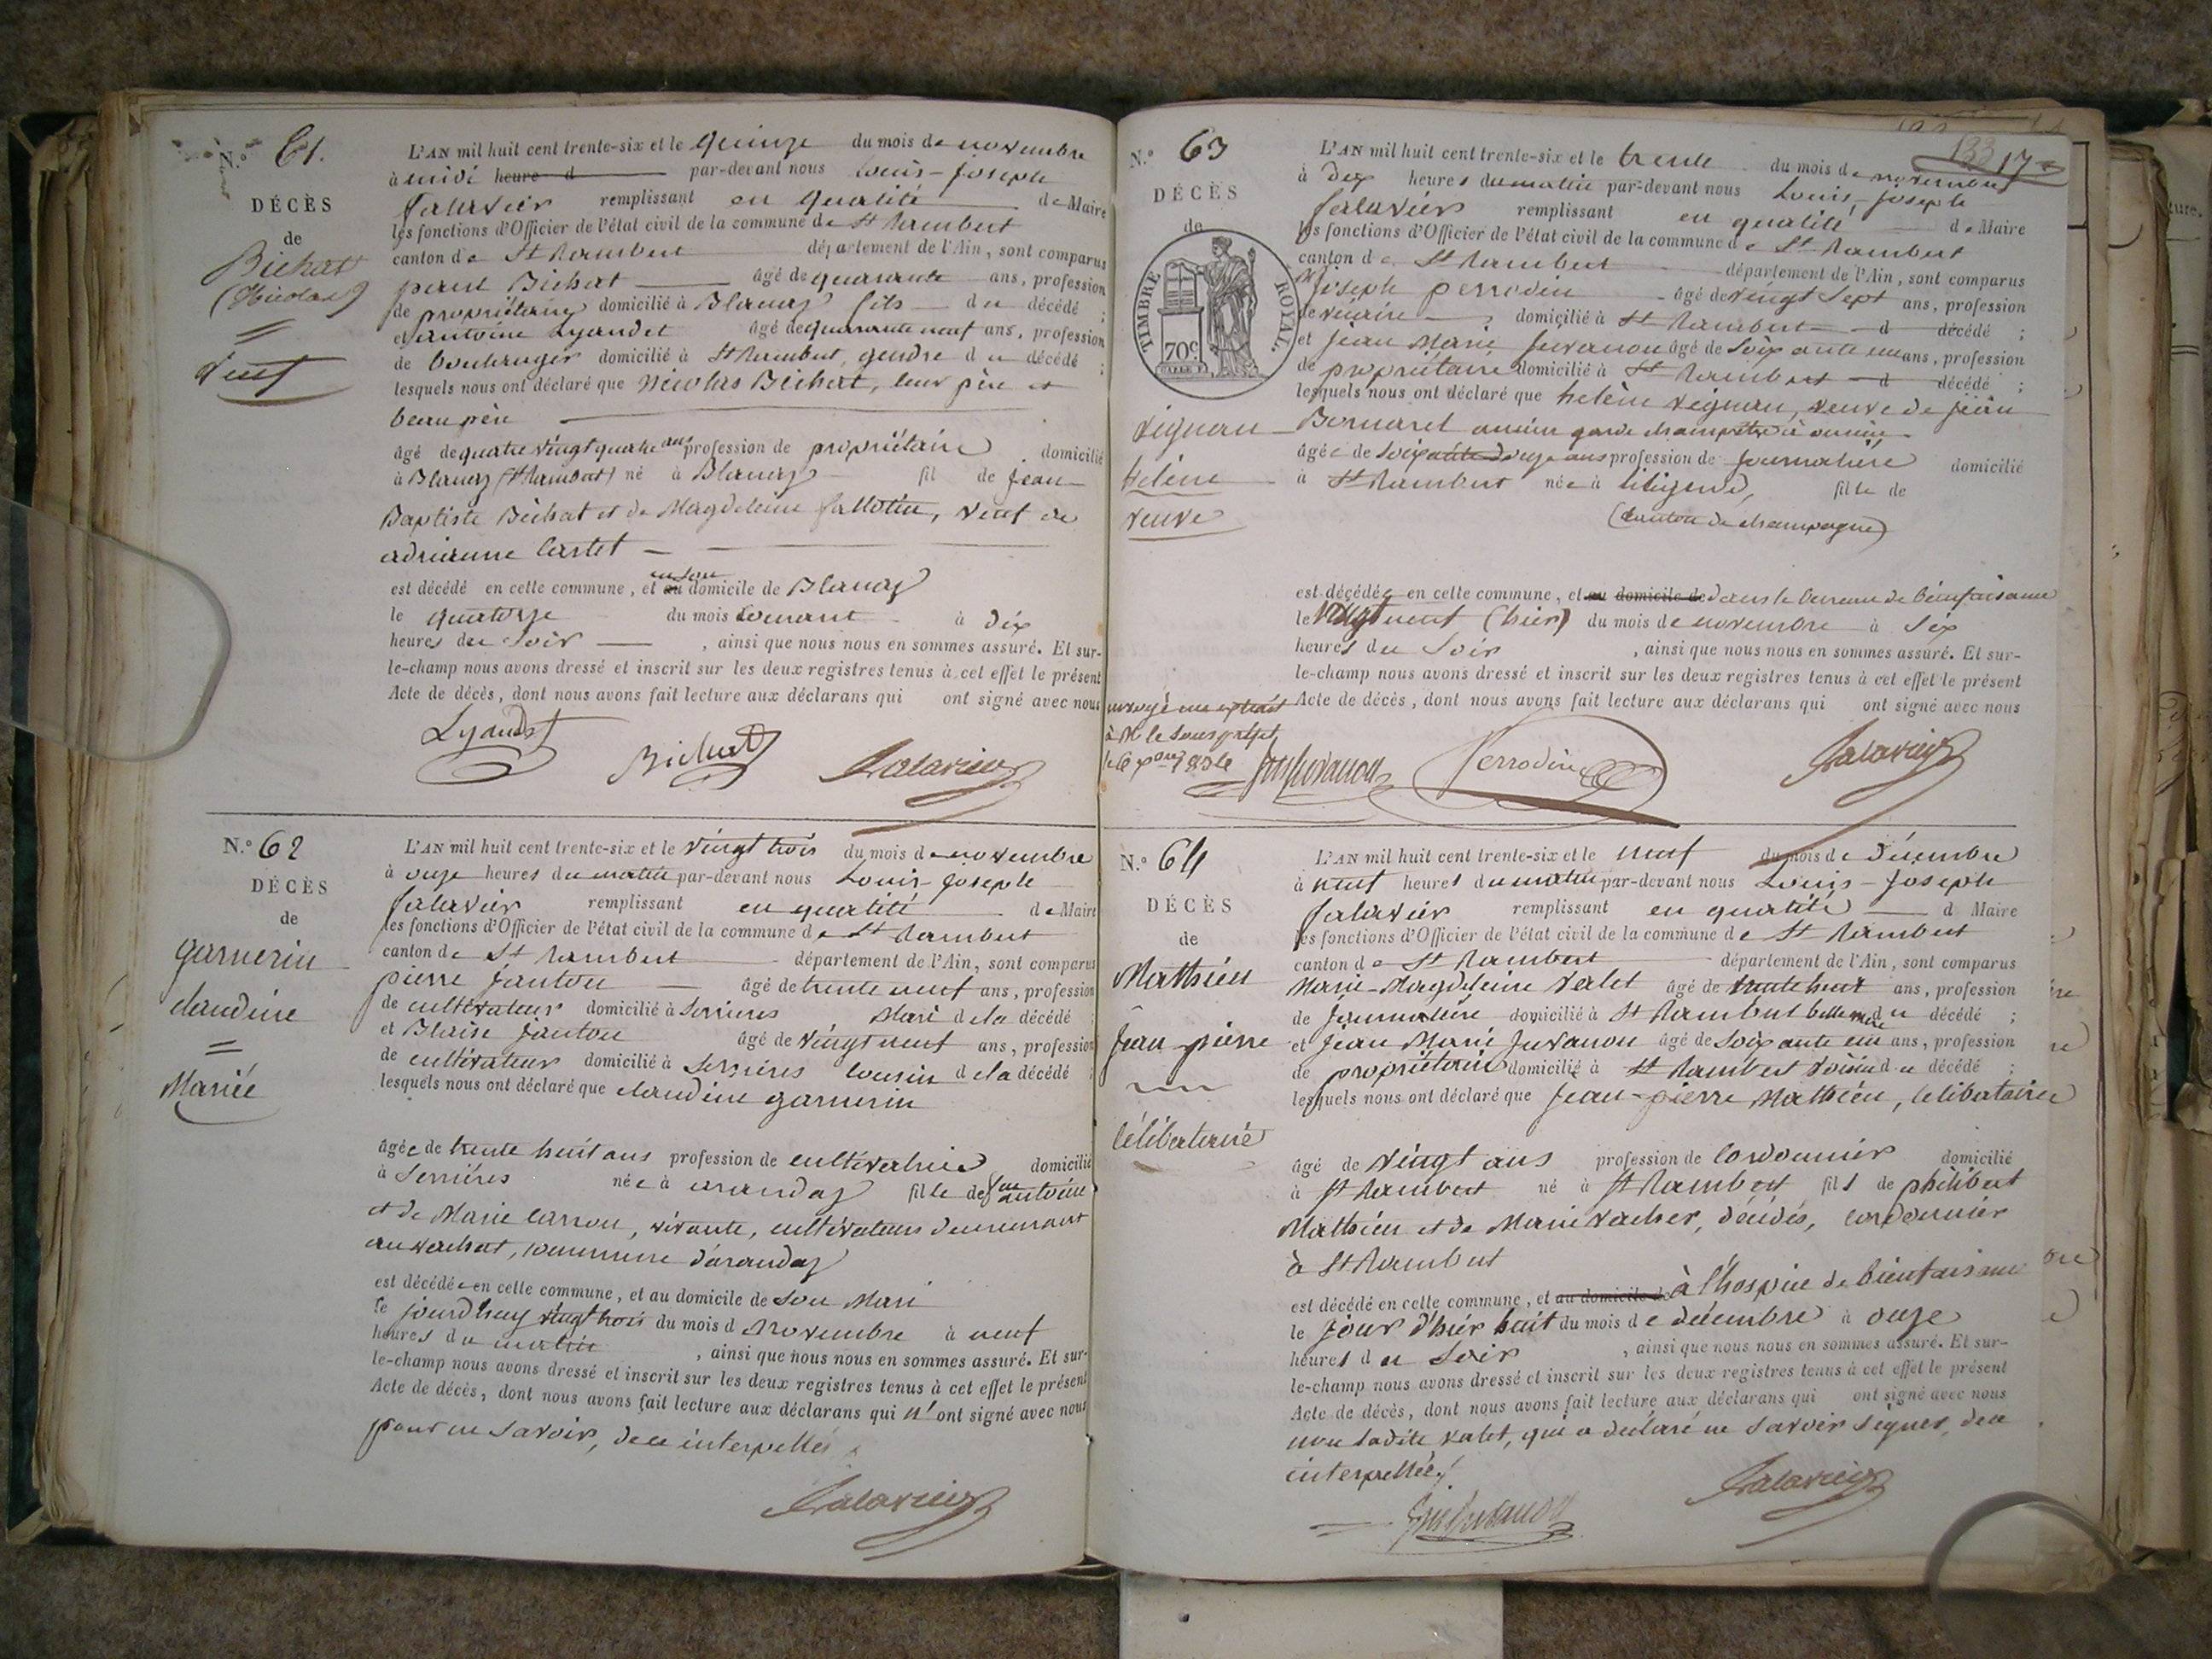 N.° 61.
DÉCÈS
de
Bichat
(Nicolas)
Veuf
L'AN mil huit cent trente-six et le quinze du mois de novembre
à midi heure d par-devant nous Louis-Joseph
Falavier remplissant en qualité de Maire
les fonctions d'Officier de l'état civil de la commune de St Rambert
canton de St Rambert département de l'Ain, sont comparus
paul Bichat âgé de quarante ans, profession
de propriétaire domicilié à Blanaz fils du décédé ;
et antoine Lyaudet âgé de quarante neuf ans, profession
de boulanger domicilié à St Rambert, gendre du décédé ;
lesquels nous ont déclaré que Nicolas Bichat, leur père et
beau père
âgé de quatre vingt quatre ans profession de propriétaire domicilié
à Blanaz (St Rambert) né à Blanaz fil de Jean
Baptiste Bichat et de Magdeleine fallotin, veuf de
adrianne Castet
est décédé en cette commune, et au en son domicile de Blanaz
le quatorze du mois courant à dix
heures du soir , ainsi que nous nous en sommes assuré. Et sur-
le-champ nous avons dressé et inscrit sur les deux registres tenus à cet effet le présent
Acte de décès, dont nous avons fait lecture aux déclarans qui ont signé avec nous
Lyaudet Bichat Falavier
N.° 62
DÉCÈS
de
garnerin
claudine
Mariée
L'AN mil huit cent trente-six et le vingt trois du mois de novembre
à onze heures du matin par-devant nous Louis-Joseph
Falavier remplissant en qualité de Maire
les fonctions d'Officier de l'état civil de la commune de St Rambert
canton de St Rambert département de l'Ain, sont comparus
pierre Janton âgé de trente neuf ans, profession
de cultivateur domicilié à Serrières Mari de la décédé ;
et Blaise Janton âgé de vingt neuf ans, profession
de cultivateur domicilié à Serrières cousin de la décédé ;
lesquels nous ont déclaré que claudine garnerin
âgée de trente huit ans profession de cultivatrice domicilié
à Serrières née à arandaz fille de feu antoine
et de Marie Carrou, vivante, cultivateurs demeurant
au vachat, commune d'arandaz
est décédée en cette commune, et au domicile de son Mari
le jourd'huy vingt trois du mois de novembre à neuf
heures du matin , ainsi que nous nous en sommes assuré. Et sur-
le-champ nous avons dressé et inscrit sur les deux registres tenus à cet effet le présent
Acte de décès, dont nous avons fait lecture aux déclarans qui n'ont signé avec nous
pour ne savoir, de ce interpellés
Falavier
133 17
N.° 63
DÉCÈS
de
TIMBRE ROYAL.
70c
vignau
helène
veuve
L'AN mil huit cent trente-six et le trente du mois de novembre
à dix heures du matin par-devant nous Louis-Joseph
Falavier remplissant en qualité de Maire
les fonctions d'Officier de l'état civil de la commune de St Rambert
canton de St Rambert département de l'Ain, sont comparus
Joseph perrodin âgé de vingt sept ans, profession
de vicaire domicilié à St Rambert d décédé ;
et Jean Marie Juvanon âgé de soixante un ans, profession
de propriétaire domicilié à St Rambert d décédé ;
lesquels nous ont déclaré que helène vignau, veuve de Jean
Bernard ancien garde champêtre à
âgée de soixante douze ans profession de Journalière domicilié
à St Rambert née à fille de
(canton de champagne)
est décédée en cette commune, et au domicile de dans le bureau de bienfaisance
le vingt neuf (hier) du mois de novembre à six
heures du soir , ainsi que nous nous en sommes assuré. Et sur-
le-champ nous avons dressé et inscrit sur les deux registres tenus à cet effet le présent
Acte de décès, dont nous avons fait lecture aux déclarans qui ont signé avec nous
envoyé un extrait
à Mr le sous préfet
Juvanon Perrodin Falavier
N.° 64
DÉCÈS
de
Mathieu
Jean-pierre
célibataire
L'AN mil huit cent trente-six et le neuf du mois de décembre
à neuf heures du matin par-devant nous Louis-Joseph
Falavier remplissant en qualité d Maire
les fonctions d'Officier de l'état civil de la commune de St Rambert
canton de St Rambert département de l'Ain, sont comparus
Marie-Magdeleine valet âgé de trente huit ans, profession
de Journalière domicilié à St Rambert belle mère du décédé ;
et Jean Marie Juvanon âgé de soixante un ans, profession
de propriétaire domicilié à St Rambert voisin du décédé ;
lesquels nous ont déclaré que Jean-pierre Mathieu, célibataire
âgé de vingt ans profession de cordonnier domicilié
à St Rambert né à St Rambert fils de philibert
Mathieu et de Marie vacher, décédés, cordonnier
à St Rambert
est décédé en cette commune, et au domicile de à l'hospice de bienfaisance
le jour d'hier huit du mois de décembre à onze
heures du soir , ainsi que nous nous en sommes assuré. Et sur-
le-champ nous avons dressé et inscrit sur les deux registres tenus à cet effet le présent
Acte de décès, dont nous avons fait lecture aux déclarans qui ont signé avec nous
non ladite valet, qui a déclaré ne savoir signer, de ce
interpellée.
Juvanon Falavier